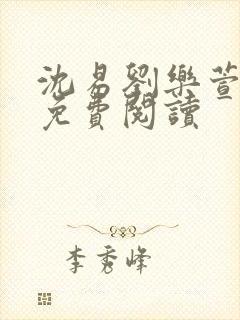 沈易劉樂萱
免費閱讀
李秀峰